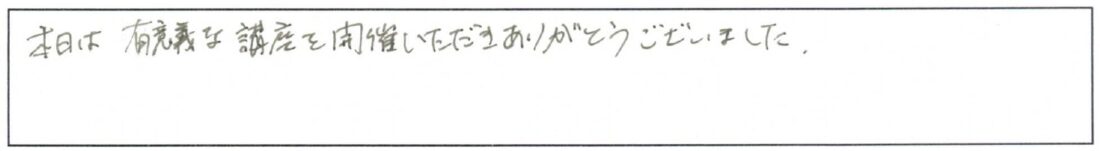 本日は有意義な講座を開催いただきありがとうございました.